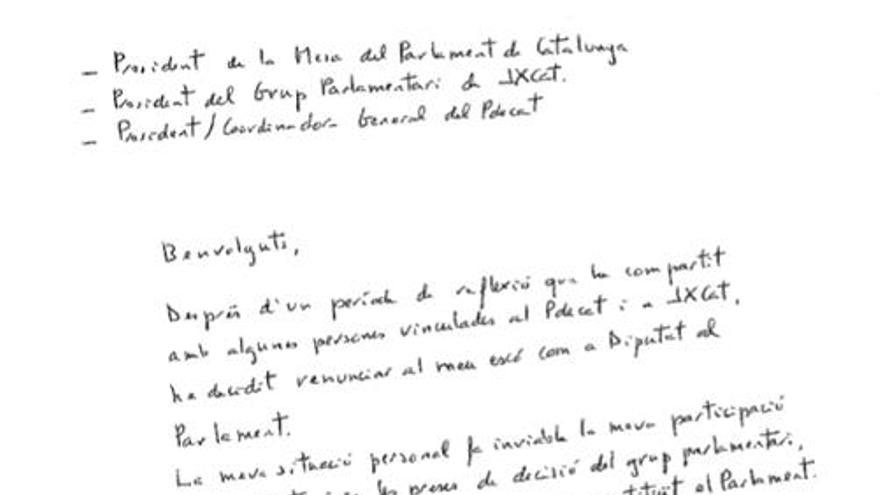 - President de la Mesa del Parlament de Catalunya
- President del Grup Parlamentari de JXCat.
- President/Coordinadora General del Pdecat
Benvolguts,
Després d'un període de reflexió que he compartit
amb algunes persones vinculades al Pdecat i a JXCat,
he decidit renunciar al meu escó com a Diputat al
Parlament.
La meva situació personal fa inviable la meva participació
les preses de decisió del grup parlamentari,
al Parlament.